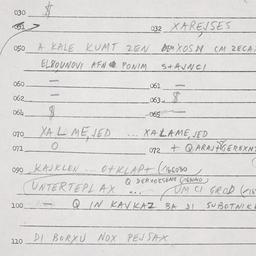 030 $
031 032 XAREJSES
050 A KALE KUMT ZEN DEM XOSN CM ZECA
ELBOUNOVI AFN PONIM STAJNCI
060 — 061 —
062 — 063 $
064 $ 065 —
070 XALMEJED ... XALAMEJED
071 O 072 + Q
090 KAJKLEN ... OTKLAPT (166080
Q
UNTERTEPLAX ... UM CI GROD
100 — Q IN KAVKAZ BA DI SUBOTNIK
110 DI BORXU NOX PEJSAX